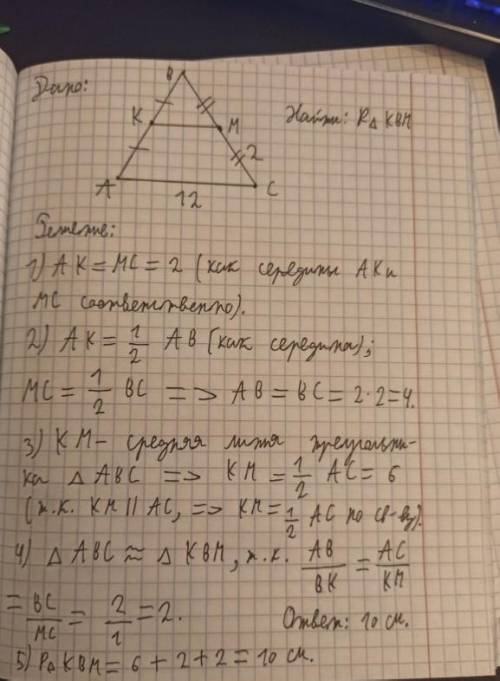 Дано:
B
K
M
2
A
C
12
Найти: P△ KBM
Решение:
1) AK = MC = 2 (как середины AK и
MC соответственно).
2) AK = 1/2 AB (как середина);
MC = 1/2 BC => AB = BC = 2·2=4.
3) KM – средняя линия треугольни-
ка △ ABC => KM = 1/2 AC = 6
(т.к. KM || AC, => KM = 1/2 AC по св-ву).
4) △ ABC ≈ △ KBM, т.к. AB/BK = AC/KM
= BC/MC = 2/1 = 2.
Ответ: 10 см.
5) P△ KBM = 6 + 2 + 2 = 10 см.